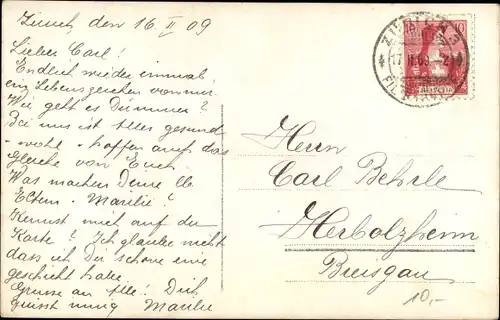 Zürich, den 16. II 09
Lieber Carl!
Endlich wieder einmal
ein Lebenszeichen von mir.
Wie geht es Dummer?
Bei uns ist Alles gesund
wohl - hoffen auf das
Gleiche von Euch.
Was machen Deine lb.
Eltern. Marilie?
Kennst mich auf der
Karte? Ich glaube nicht
dass ich Du schone eine
geschickt habe.
Grüsse an Alle! Dich
grüsst innig Marilie
ZÜRICH 3
17. II. 09. - 2
10
HELVETIA
Herrn
Carl Behrle
Herbolzheim
Breisgau
10,-